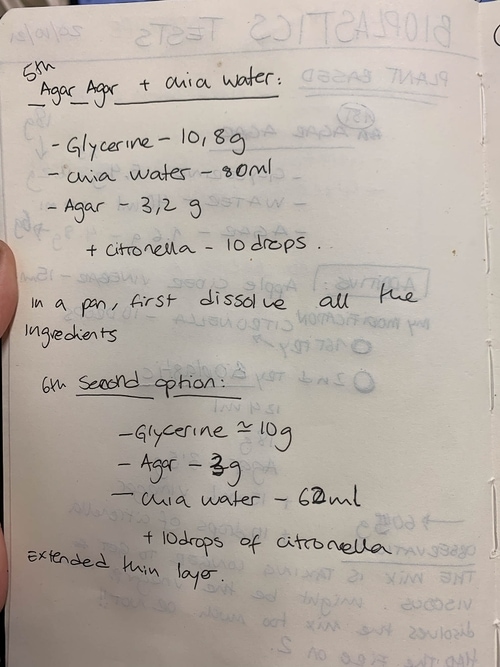 5th
Agar Agar + chia water:
- Glycerine - 10,8g
- chia water - 80ml
- Agar - 3,2 g
+ citronella - 10 drops.
in a pan, first dissolve all the
ingredients
6th second option:
- Glycerine ≈ 10g
- Agar - 3g
- chia water - 62ml
+ 10 drops of citronella
Extended thin layer.